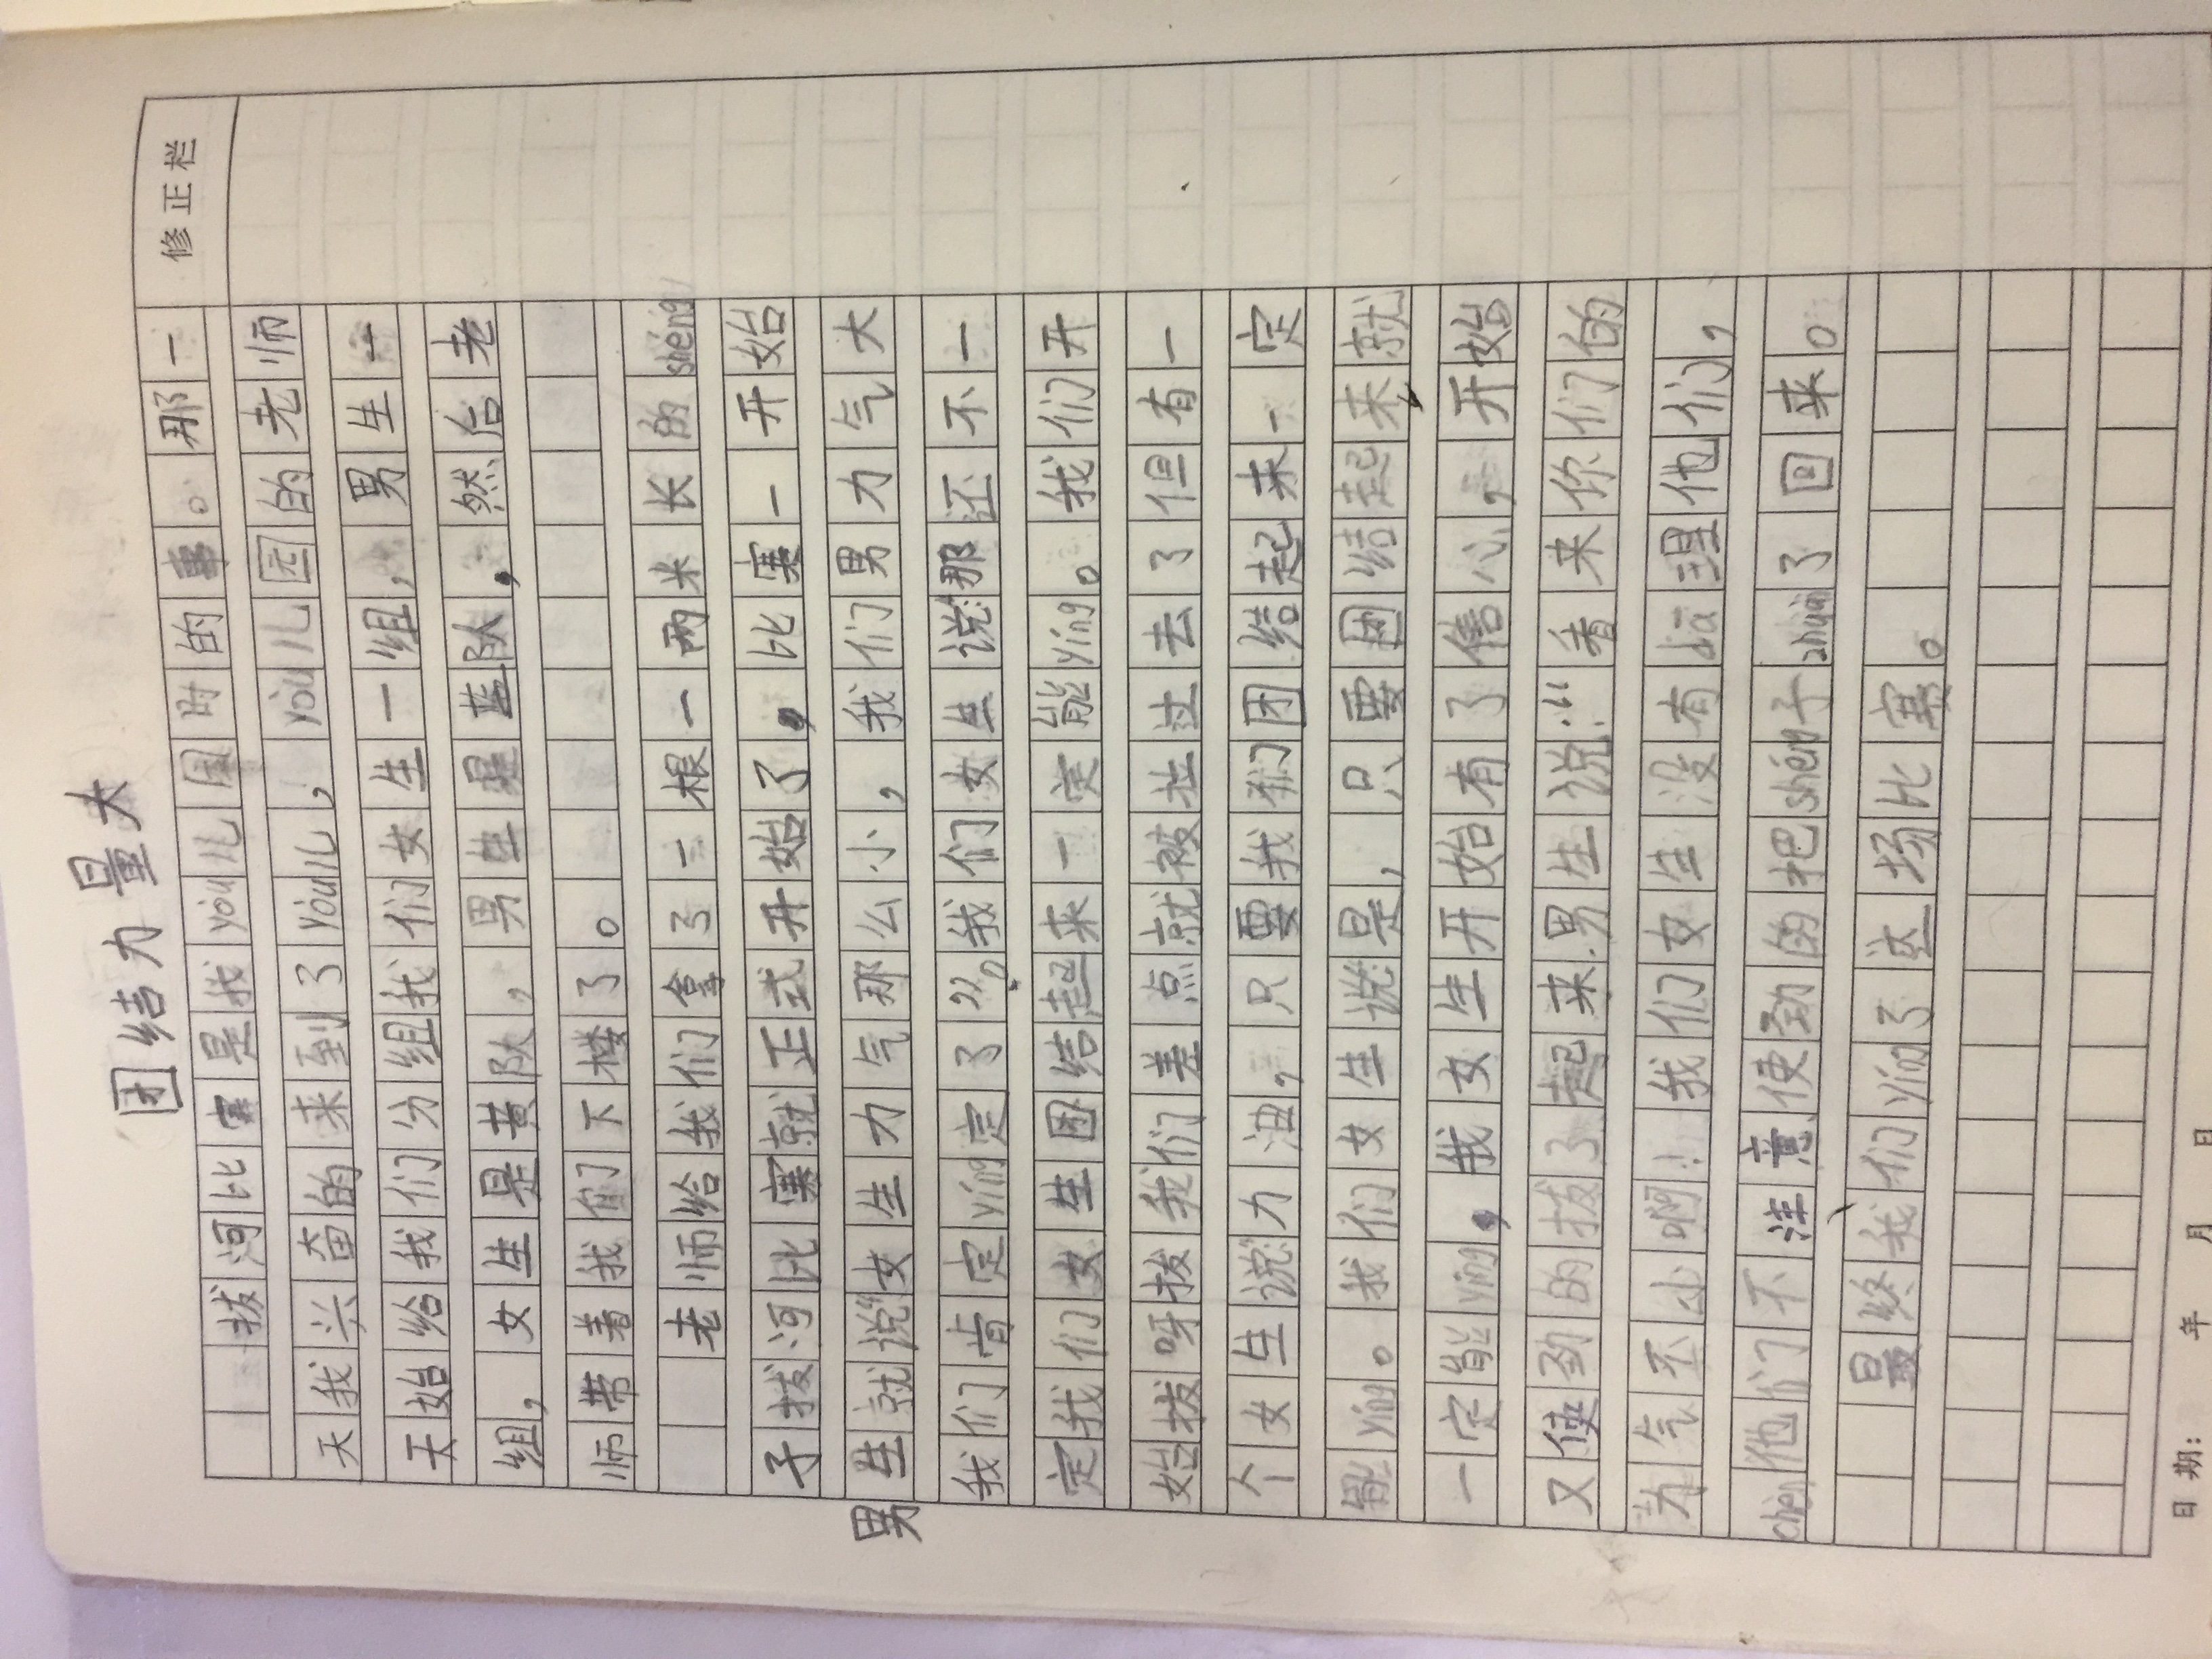 团结力量大
修正栏
拔河比赛是我yòu儿园时的事。那一
天我兴奋的来到了yòu儿,yòu儿园的老师
天始给我们分组我们女生一组,男生一
组,女生是黄队,男生是蓝队,然后老
师带着我们下楼了。
老师给我们拿了一根一两米长的shéng
子拔河比赛就正式开始了,比赛一开始
男生就说“女生力气那么小,我们男力气大
我们肯定yíng定了”。我们女生说“那还不一
定我们女生团结起来一定能yíng。我们开
始拔呀拔我们差点就被拉过去了但有一
个女生说“力油,只要我们团结起来一定
能yíng。我们女生说“是,只要团结起来就
一定能yíng,我女生开始有了信心,开始
又使劲的拔了起来.男生说:“看来你们的
力气不小啊!我们女生没有dā理他们,
chèn他们不注意使劲的把shéng子zhuài了回来。
最终我们yíng了这场比赛。
日期: 年 月 日